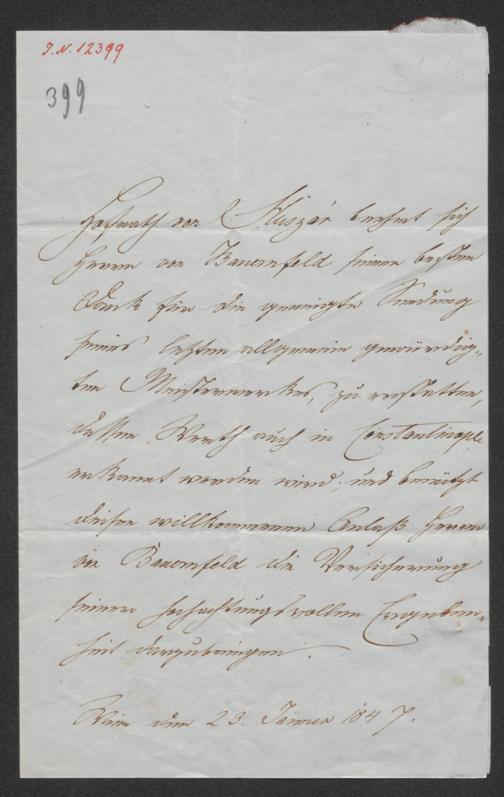 I.N. 12399
399
Hofrath von Huszár beehrt sich
Herrn von Bauernfeld seinen besten
Dank für die geneigte Sendung
seines letzten allgemein gewürdig-
ten Meisterwerkes, zu erstatten,
dessen Werth auch in Constantinopel
erkannt werden wird; und benützt
diesen willkommenen Anlaß Herrn
von Bauernfeld die Versicherung
seiner hochachtungsvollen Ergeben-
heit darzubringen.
Wien den 23. Jänner 1847.